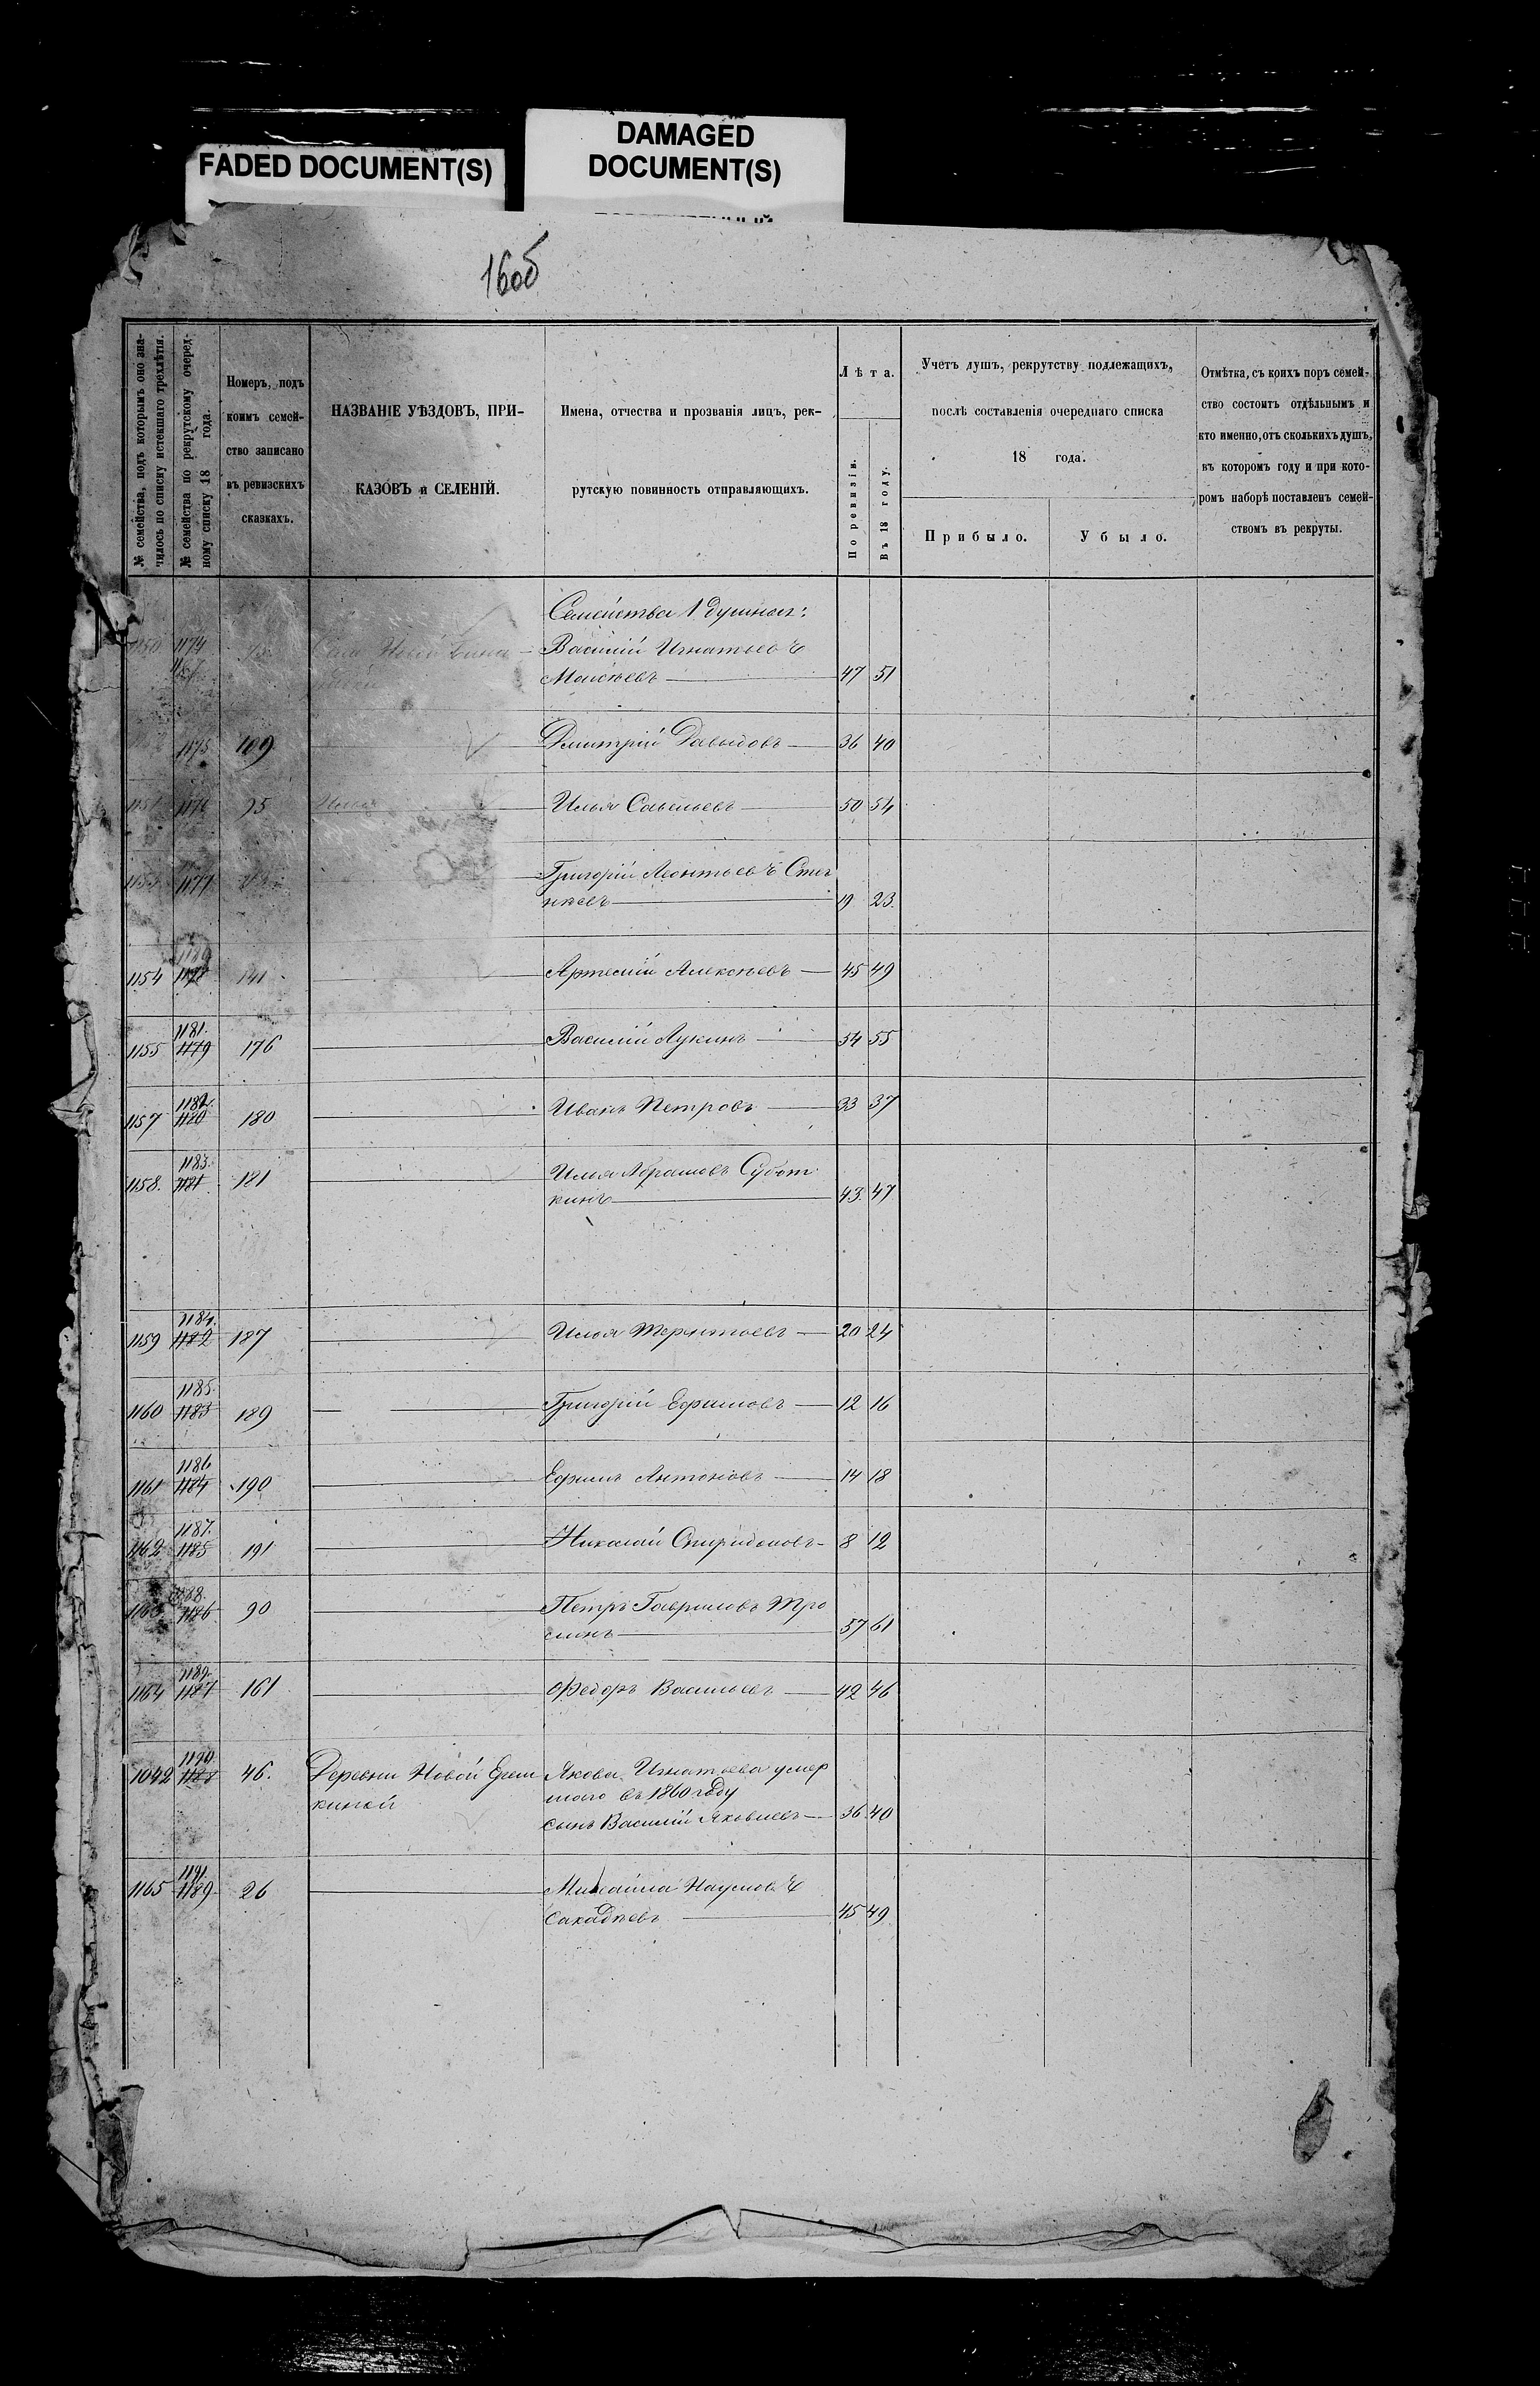 FADED DOCUMENT(S)
DAMAGED
DOCUMENT(S)
16об
№ семейства, подъ которымъ оно зна-
чилось по списку истекшаго трехлѣтія.
№ семейства по рекрутскому очеред-
ному списку 18 года.
Номеръ, подъ
коимъ семей-
ство записано
въ ревизскихъ
сказкахъ.
НАЗВАНІЕ УѢЗДОВЪ, ПРИ-
КАЗОВЪ и СЕЛЕНІЙ.
Имена, отчества и прозванія лицъ, рек-
рутскую повинность отправляющихъ.
Лѣта.
По ревизіи.
Въ 18 году.
Учетъ душъ, рекрутству подлежащихъ,
послѣ составленія очереднаго списка
18 года.
Прибыло.
Убыло.
Отмѣтка, съ коихъ поръ семей-
ство состоитъ отдѣльнымъ и
кто именно, отъ сколькихъ душъ,
въ которомъ году и при кото-
ромъ наборѣ поставленъ семей-
ствомъ въ рекруты.
Семейства 1 душная:
1150 1174 Василій Игнатьевъ
Моисѣевъ 47 51
1175 109 Дмитрій Давыдовъ 36 40
1176 95 Илья Савельевъ 50 54
1177 Григорій Леонтьевъ
19 23
1154 1178 141 Артемій Алексѣевъ 45 49
1181.
1155 1179 176 Василій Лукинъ 54 55
1182.
1157 1180 180 Иванъ Петровъ 33 37
1183.
1158. 1181 181 Илья Абрамовъ Субот
кинъ 43 47
1184.
1159 1182 187 Илья Терентьевъ 20 24
1185.
1160 1183 189 Григорій Ефимовъ 12 16
1186
1161 1184 190 Ефимъ Антоновъ 14 18
1187.
1162 1185 191 Николай Спиридоновъ 8 12
1188.
1163 1186 90 Петръ Гавриловъ Тро
синъ 57 61
1189.
1164 1187 161 Федоръ Васильевъ 42 46
1190.
1042 1188 46. Деревни Новой Ерем Якова Игнатьева умер
киной шаго въ 1860 году
сынъ Василій Яковлевъ 36 40
1191.
1165 1189 26 Михайла Наумовъ
Сакадѣевъ 45 49